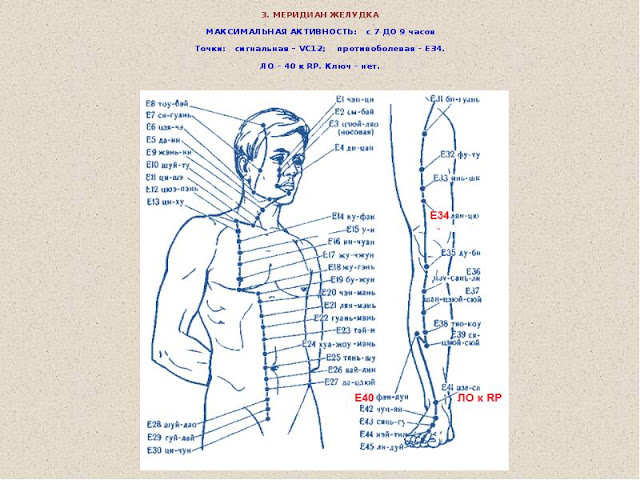 3. МЕРИДИАН ЖЕЛУДКА
МАКСИМАЛЬНАЯ АКТИВНОСТЬ: с 7 ДО 9 часов
Точки: сигнальная – VC12; противоболевая - E34.
ЛО - 40 к RP. Ключ - нет.
E8 тоу-вэй
E7 ся-гуань
E6 цзя-чэ
E5 да-ин
E9 жэнь-ин
E10 шуй-ту
E11 ци-шэ
E12 цюэ-пэнь
E13 ци-ху
E1 чэн-ци
E2 сы-бай
E3 цзюй-ляо
(носовая)
E4 ди-цан
E14 ку-фан
E15 у-и
E16 ин-чуан
E17 жу-чжун
E18 жу-гэнь
E19 бу-жун
E20 чэн-мань
E21 лян-мэнь
E22 гуань-мэнь
E23 тай-и
E24 хуа-жоу-мэнь
E25 тянь-шу
E26 вай-лин
E27 да-цзюй
E28 шуй-дао
E29 гуй-лай
E30 ци-чун
E31 би-гуань
E32 фу-ту
E33 инь-ши
E34 лян-цю
E35 ду-би
E36
цзу-сань-ли
E37
шан-цзюй-сюй
E38 тяо-коу
E39 ся-
цзюй-сюй
E40 фэн-лун
E41 цзе-си
ЛО к RP
E42 чун-ян
E43 сянь-гу
E44 нэй-тин
E45 ли-дуй